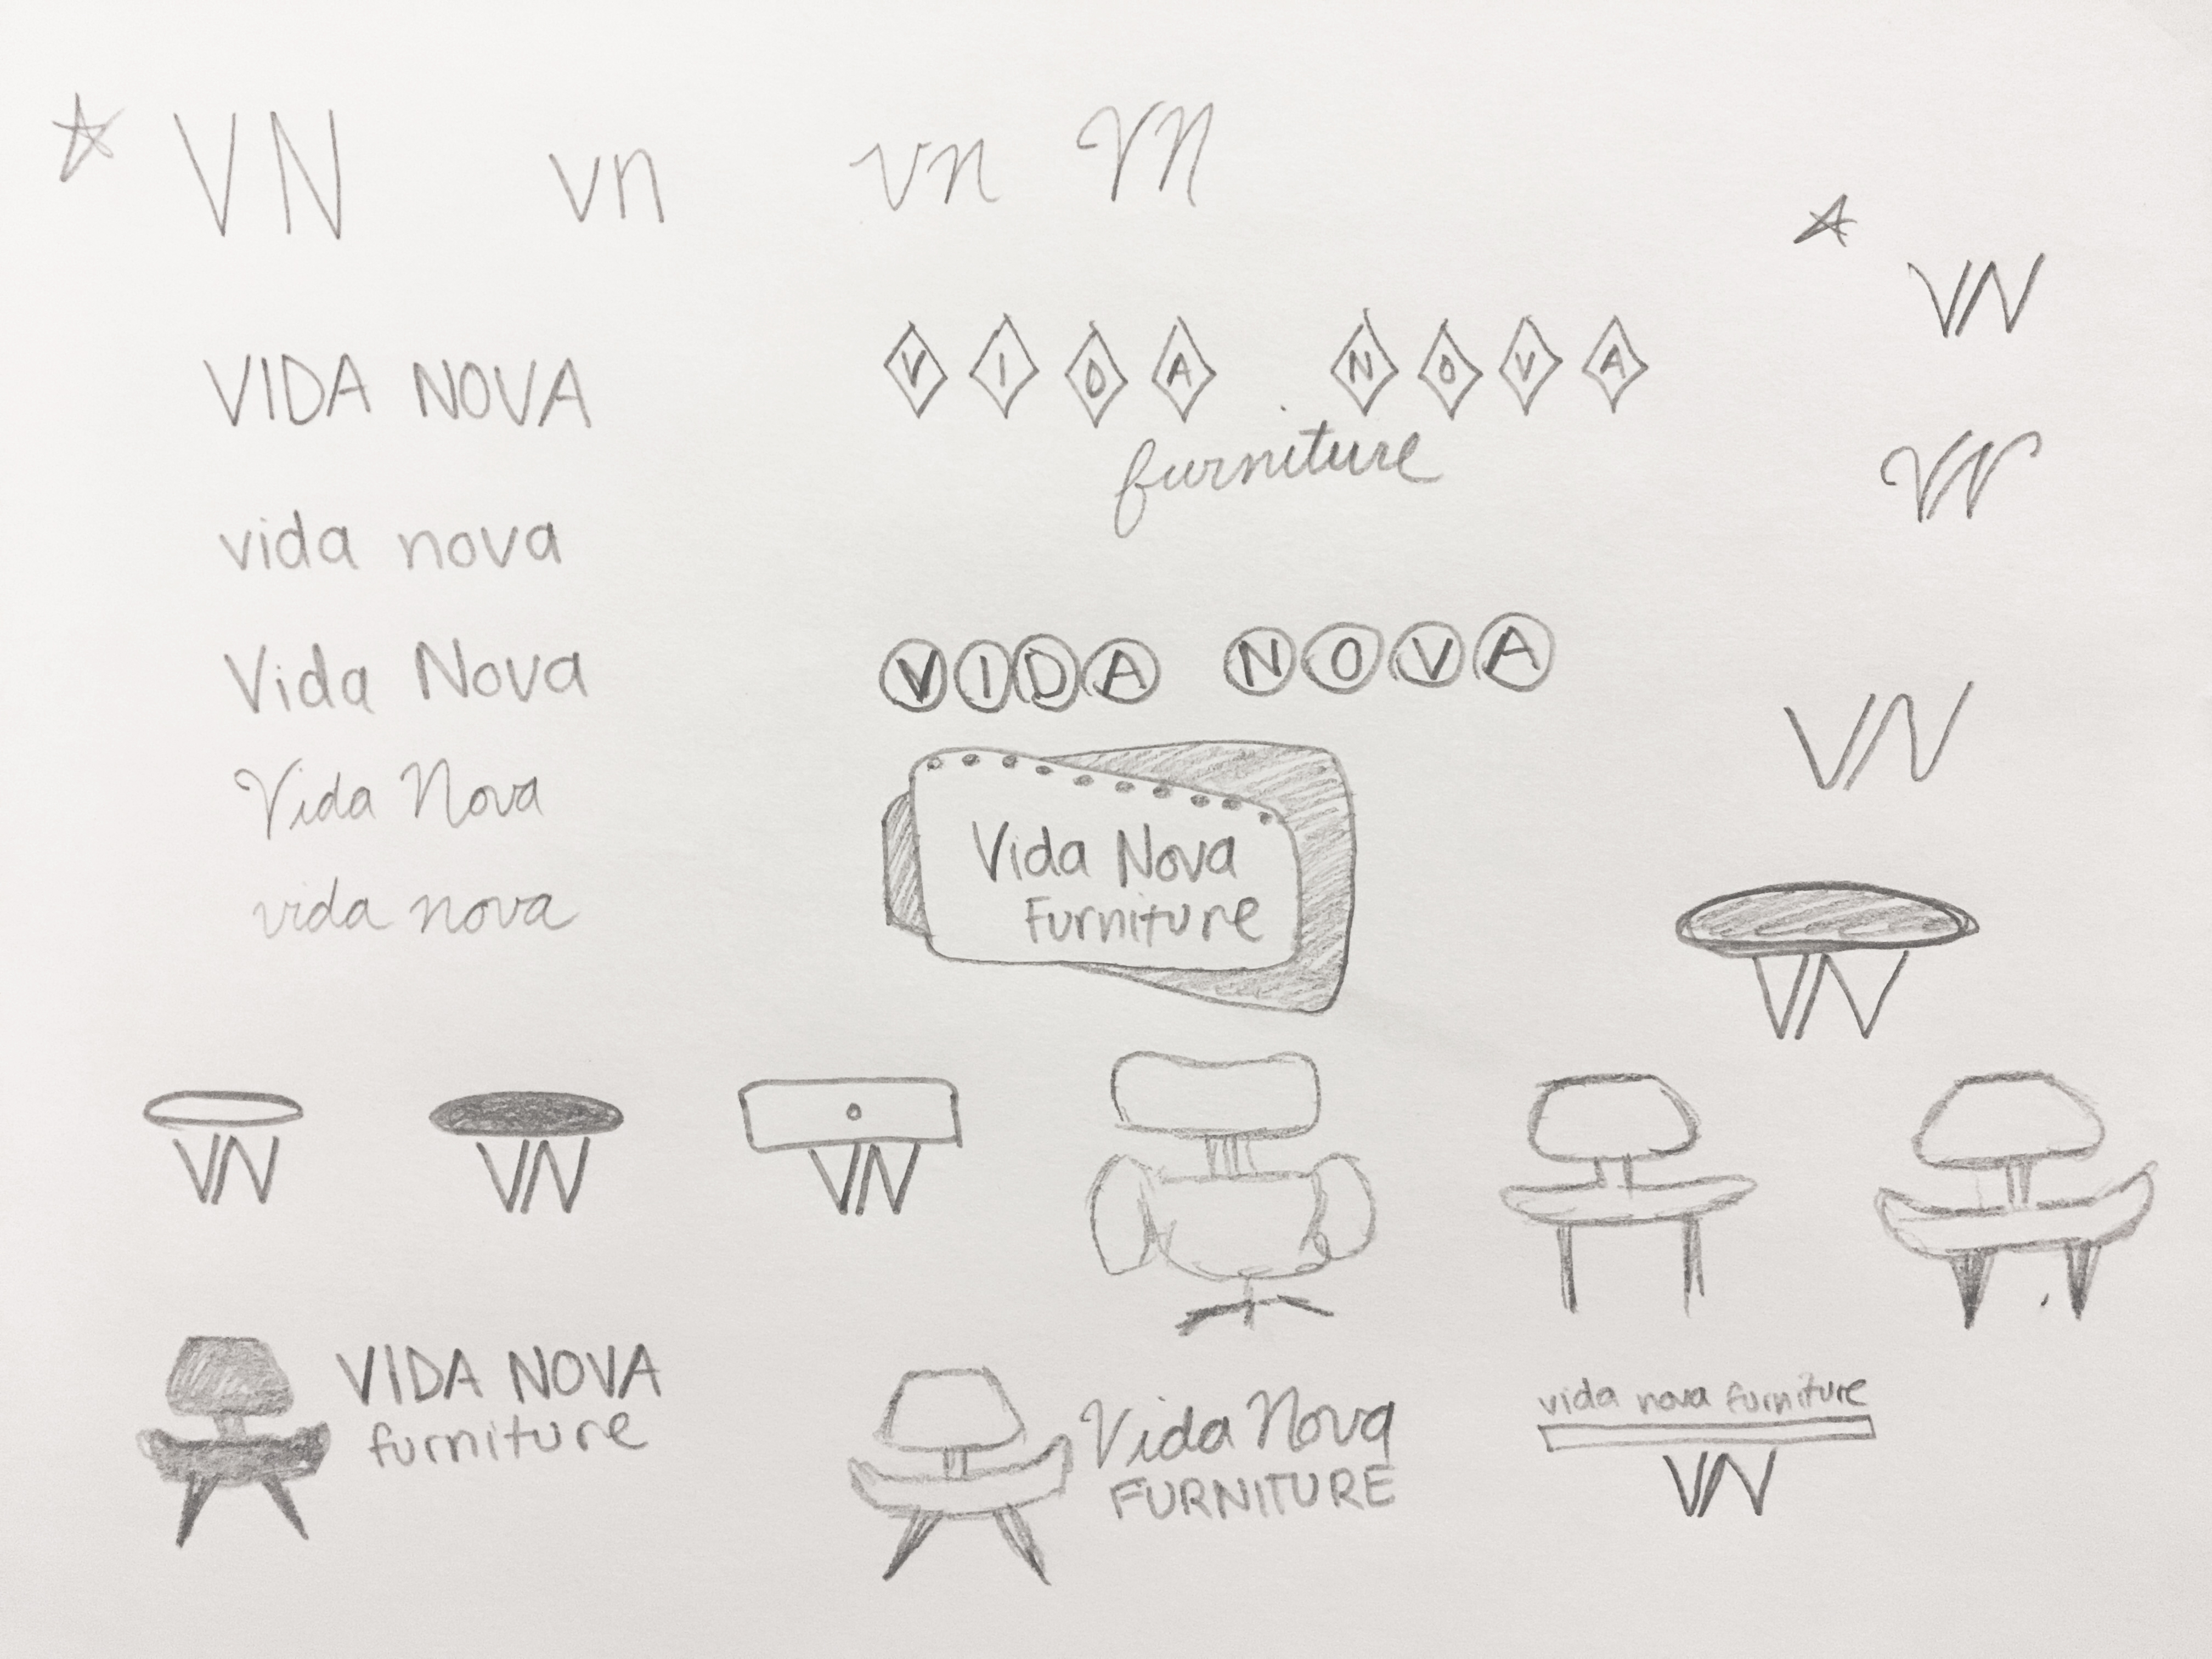 VN vn vn VN
VN
VIDA NOVA
VIDA NOVA
furniture
VN
vida nova
Vida Nova
VIDA NOVA
VN
Vida Nova
vida nova
Vida Nova
Furniture
VN
VN VN VN
VIDA NOVA
furniture
Vida Nova
FURNITURE
vida nova furniture
VN